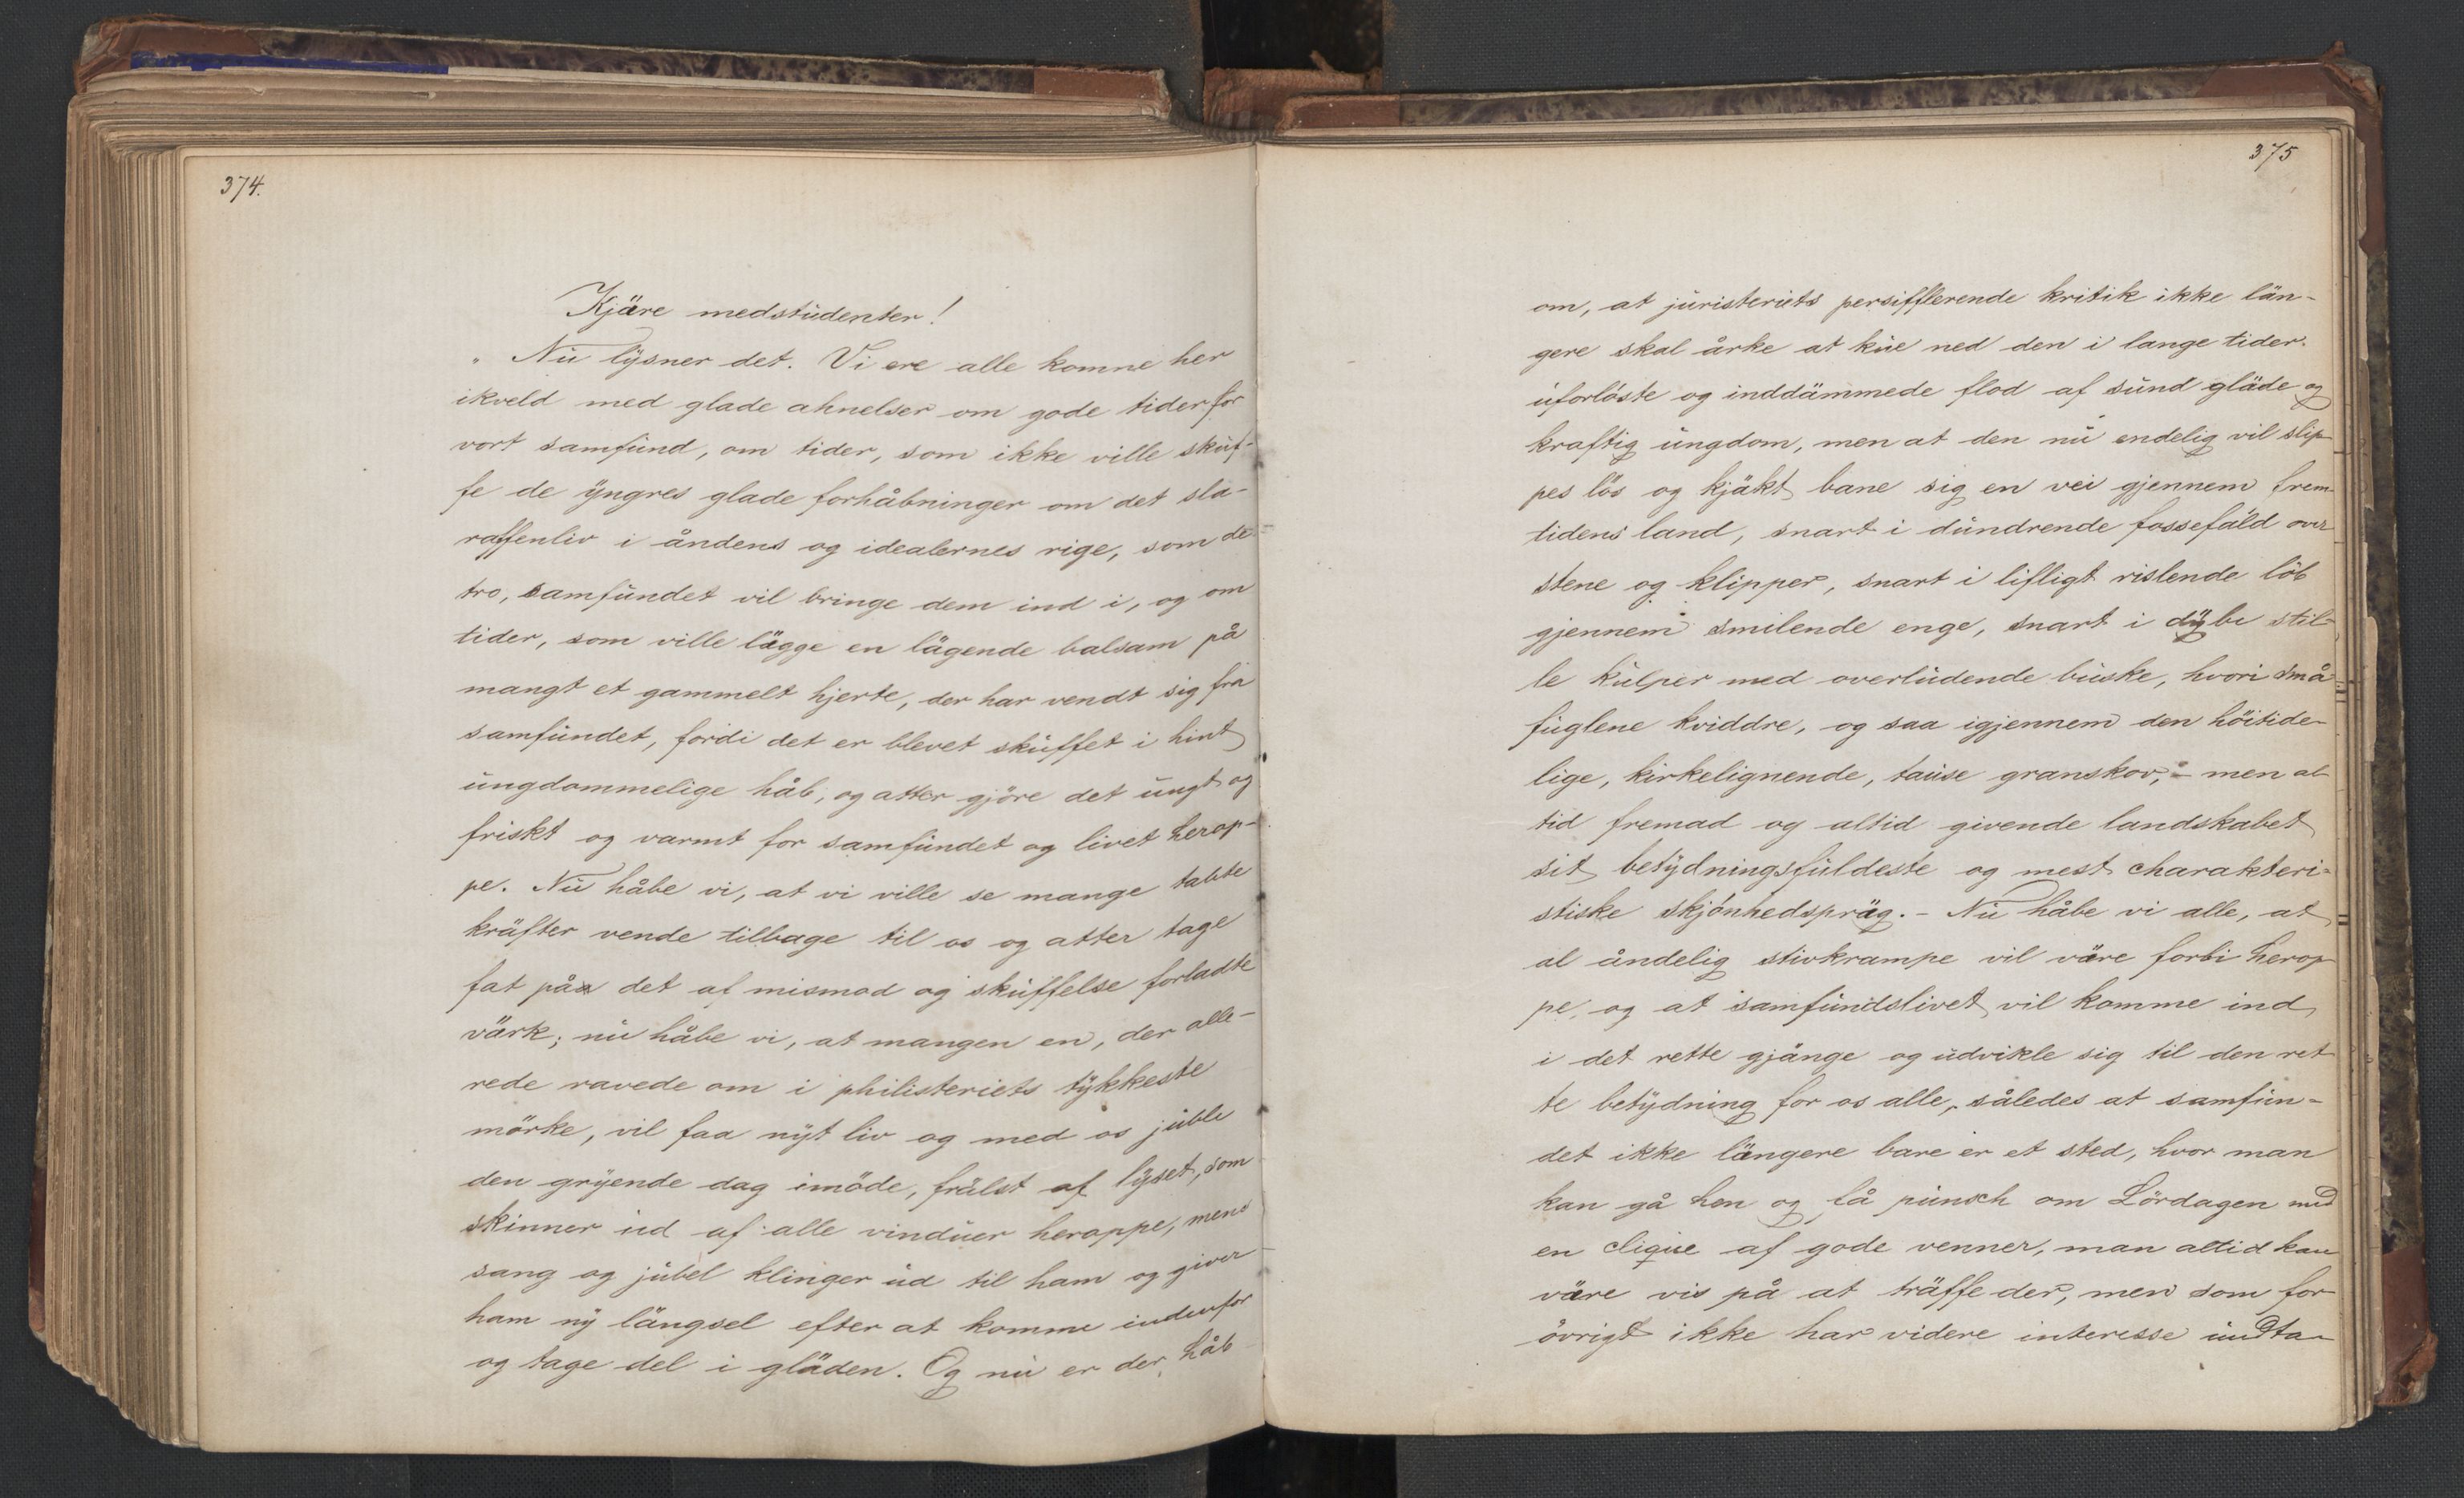 374.
Kjäre medstudenter!
„ Nu lysner det. Vi ere alle komne her
ikveld med glade ahnelser om gode tider for
vort samfund, om tider, som ikke ville skuf-
fe de yngres glade forhåbninger om det sla-
raffenliv i åndens og idealernes rige, som de
tro, samfundet vil bringe dem ind i, og om
tider, som ville lägge en lägende balsam på
mangt et gammelt hjerte, der har vendt sig fra
samfundet, fordi det er blevet skuffet i hint
ungdommelige håb, og atter gjöre det ungt og
friskt og varmt for samfundet og livet herop-
pe. Nu håbe vi, at vi ville se mange tabte
kräfter vende tilbage til os og atter tage
fat på det af mismod og skuffelse forladte
värk; nu håbe vi, at mangen en, der alle-
rede ravede om i philisteriets tykkeste
mörke, vil faa nyt liv og med os juble
den gryende dag imöde, frälst af lyset, som
skinner ud af alle vinduer heroppe, mens
sang og jubel klinger ud til ham og giver
ham ny längsel efter at komme indenfor
og tage del i gläden. Og nu er der håb
375
om, at juristeriets persifflerende kritik ikke län-
gere skal årke at kue ned den i lange tider
uforlöste og inddämmede flod af sund gläde og
kraftig ungdom, men at den nu endelig vil slip-
pes lös og kjäkt bane sig en vei gjennem frem-
tidens land, snart i dundrende fossefäld over
stene og klipper, snart i lifligt rislende löb
gjennem smilende enge, snart i dybe stil-
le kulper med overludende buske, hvori små-
fuglene kviddre, og saa igjennem den höitide-
lige, kirkelignende, tause granskov, – men al-
tid fremad og altid givende landskabet
sit betydningsfuldeste og mest charakteri-
stiske skjönhedspräg. – Nu håbe vi alle, at
al åndelig stivkrampe vil väre forbi herop-
pe, og at samfundslivet vil komme ind
i det rette gjänge og udvikle sig til den ret-
te betydning for os alle, således at samfun-
det ikke längere bare er et sted, hvor man
kan gå hen og få punsch om Lördagen med
en clique af gode venner, man altid kan
väre vis på at träffe der, men som for-
övrigt ikke har videre interesse undta-